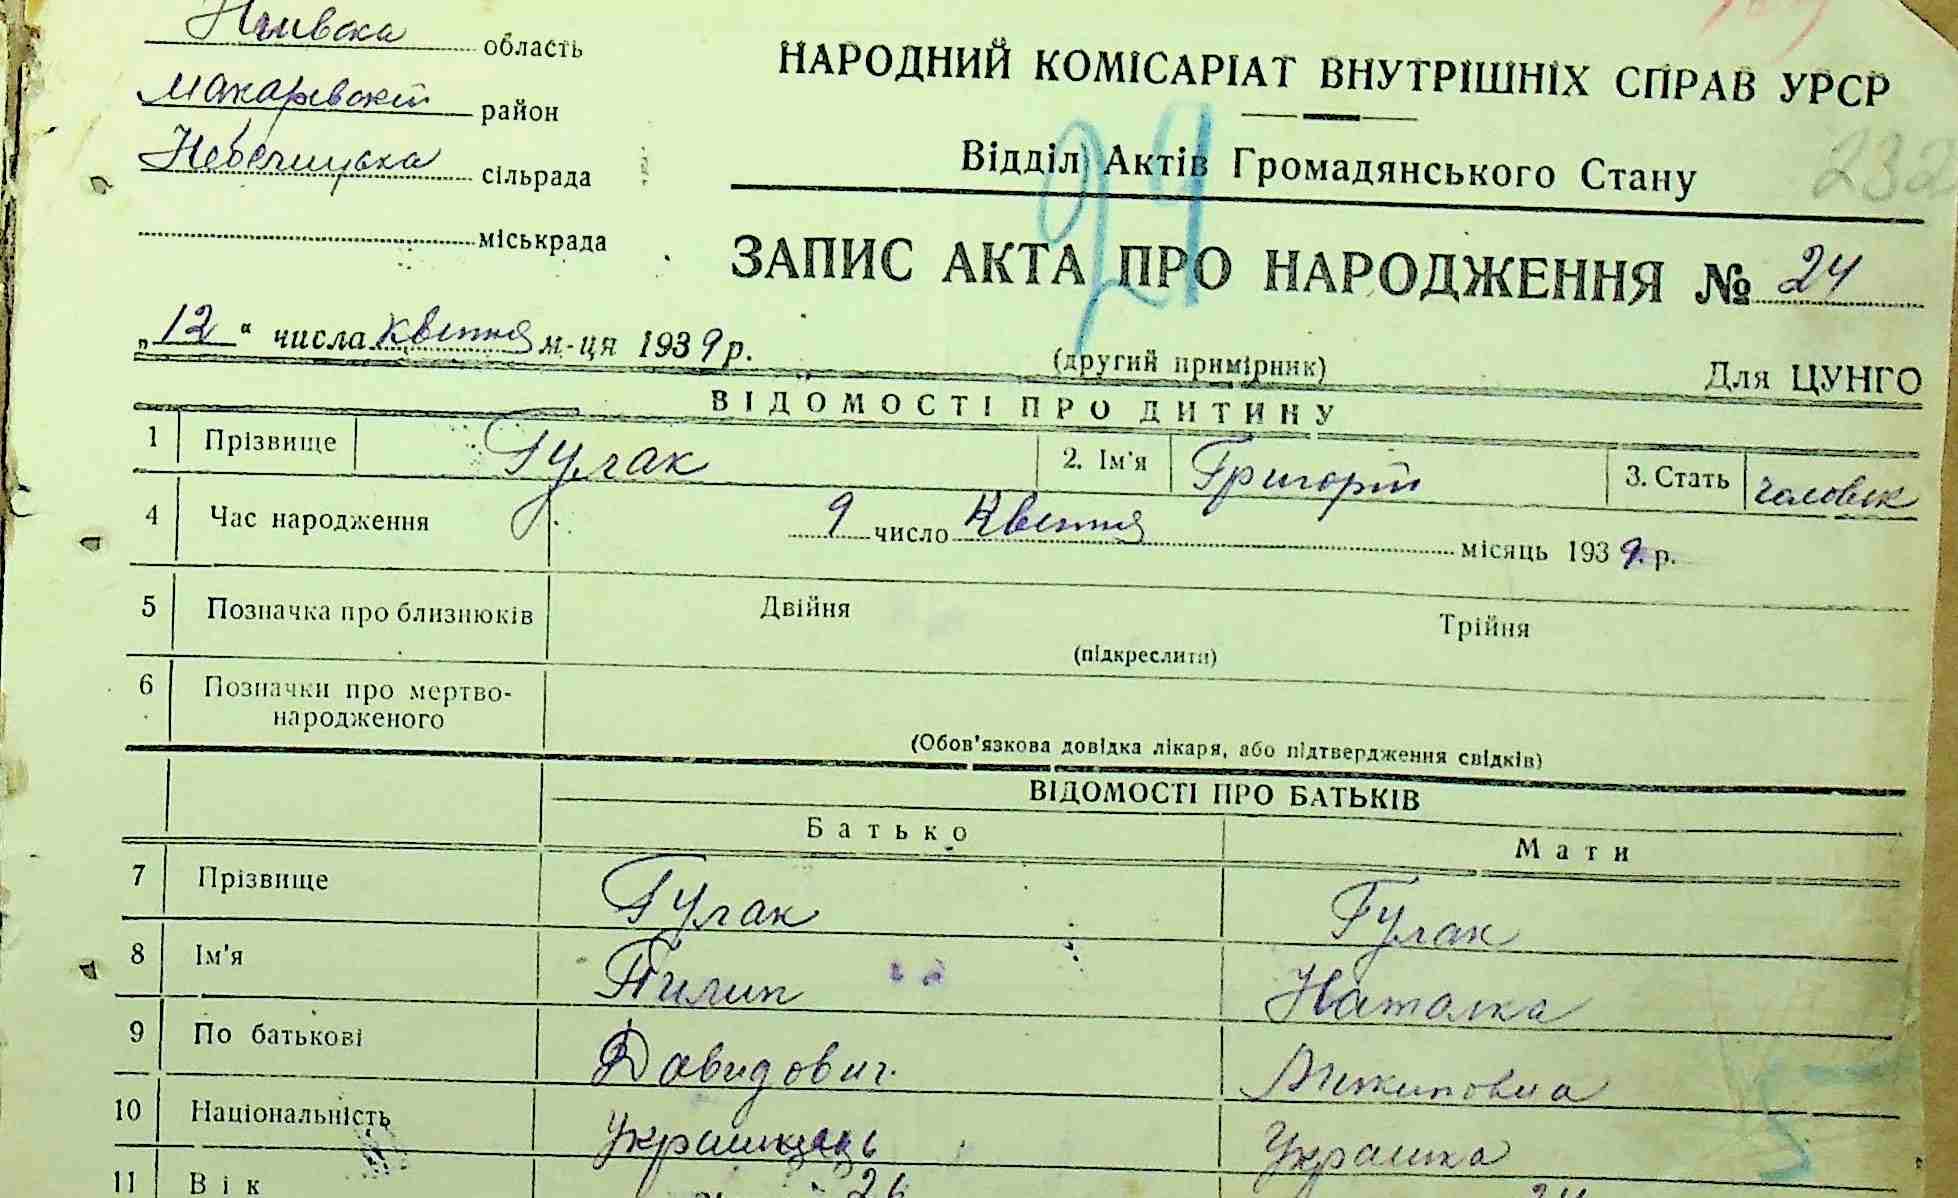 Київська область
Макарівський район
Небелицька сільрада
міськрада
НАРОДНИЙ КОМІСАРІАТ ВНУТРІШНІХ СПРАВ УРСР
Відділ Актів Громадянського Стану
232
24
ЗАПИС АКТА ПРО НАРОДЖЕННЯ № 24
„12“ числа квітня м-ця 1939 р.
(другий примірник)
Для ЦУНГО
ВІДОМОСТІ ПРО ДИТИНУ
1 Прізвище Гулак 2. Ім'я Григорій 3. Стать чоловік
4 Час народження 9 число Квітня місяць 1939. р.
5 Позначка про близнюків Двійня Трійня
(підкреслити)
6 Позначки про мертво-
народженого
(Обов'язкова довідка лікаря, або підтвердження свідків)
ВІДОМОСТІ ПРО БАТЬКІВ
Батько Мати
7 Прізвище Гулак Гулак
8 Ім'я Пилип Наталка
9 По батькові Давидович
10 Національність Українець Українка
11 Вік 26